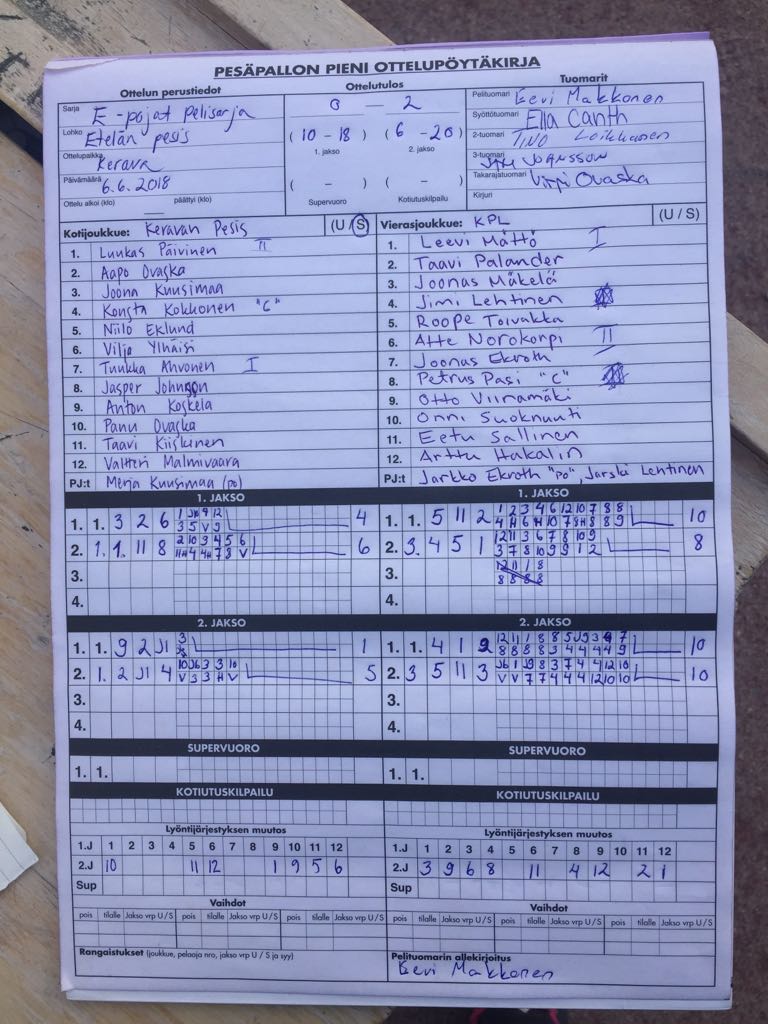 PESÄPALLON PIENI OTTELUPÖYTÄKIRJA
Ottelun perustiedot
Sarja E-pojat Pelisarja
Lohko Etelän pesis
Ottelupaikka Kerava
Päivämäärä 6.6.2018
Ottelu alkoi (klo) päättyi (klo)
Ottelutulos
0 – 2
(10 - 18) (6 - 20)
1. jakso 2. jakso
( - ) ( - )
Supervuoro Kotiutuskilpailu
Tuomarit
Pelituomari Eevi Makkonen
Syöttötuomari Ella Canth
2-tuomari TINO
3-tuomari JOANSSON
Takarajatuomari Virpi Ovaska
Kirjuri
Kotijoukkue: Keravan Pesis (U / S)
1. Luukas Päivinen II
2. Aapo Ovaska
3. Joona Kuusimaa
4. Konsta Kokkonen "C"
5. Niilo Eklund
6. Viljo Ylhäisi
7. Tuukka Ahvonen I
8. Jasper Johnson
9. Anton Koskela
10. Panu Ovaska
11. Taavi Kiiskinen
12. Valtteri Malmivaara
PJ:t Merja Kuusimaa (po)
Vierasjoukkue: KPL (U / S)
1. Leevi Mättö I
2. Taavi Palander
3. Joonas Mäkelä
4. Jimi Lehtinen
5. Roope Toivakka
6. Atte Norokorpi II
7. Joonas Ekroth
8. Petrus Pasi "C"
9. Otto Viinamäki
10. Onni Suoknuuti
11. Eetu Sallinen
12. Arttu Hakalin
PJ:t Jarkko Ekroth "po", Jarski Lehtinen
1. JAKSO
1. 1. 3 2 6 4
2. 1. 1. 11 8 6
3.
4.
1. JAKSO
1. 1. 5 11 2 10
2. 3. 4 5 1 8
3.
4.
2. JAKSO
1. 1. 9 2 J1 1
2. 1. 2 J1 4 5
3.
4.
2. JAKSO
1. 1. 4 1 2 10
2. 3 5 11 3 10
3.
4.
SUPERVUORO
1. 1.
SUPERVUORO
1. 1.
KOTIUTUSKILPAILU
KOTIUTUSKILPAILU
Lyöntijärjestyksen muutos
1.J 1 2 3 4 5 6 7 8 9 10 11 12
2.J 10 11 12 1 9 5 6
Sup
Lyöntijärjestyksen muutos
1.J 1 2 3 4 5 6 7 8 9 10 11 12
2.J 3 9 6 8 11 4 12 2 1
Sup
Vaihdot
pois tilalle Jakso vrp U / S pois tilalle Jakso vrp U / S pois tilalle Jakso vrp U / S
Vaihdot
pois tilalle Jakso vrp U / S pois tilalle Jakso vrp U / S pois tilalle Jakso vrp U / S
Rangaistukset (joukkue, pelaaja nro, jakso vrp U / S ja syy)
Pelituomarin allekirjoitus
Eevi Makkonen